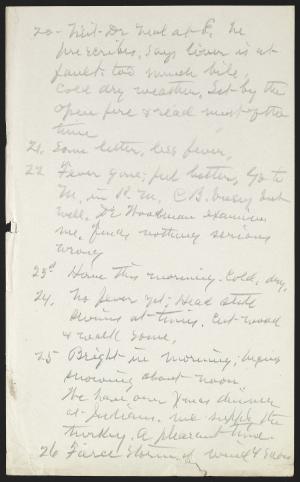 20- Visit Dr Neal at P. He
prescribes, says liver is at
fault: too much bile,
Cold dry weather, Sit by the
open fire & read most of the
time
21. Some better, less fever,
22 Fever gone; feel better, Go to
M. in P.M. C.B. very
well. Dr Woodman examines
me, finds nothing serious
wrong
23d Home this morning. Cold, dry,
24, No fever yet; Head still
swims at times. Cut wood
& walk some,
25 Bright in morning; began
snowing about noon
We have our Xmas dinner
at Julians. We supply the
turkey. A pleasant time
26 Fierce storm of wind &